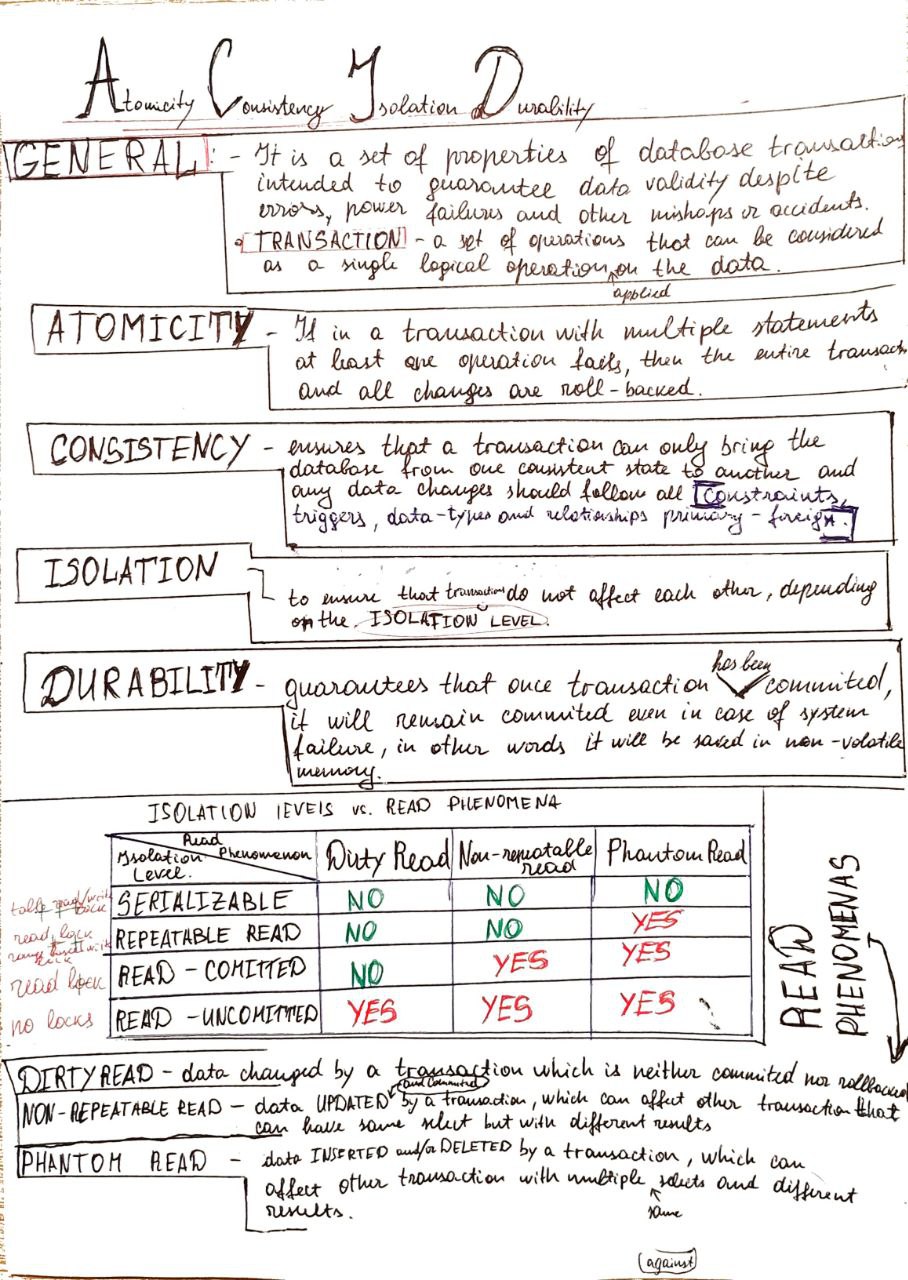 Atomicity Consistency Isolation Durability
GENERAL: - It is a set of properties of database transaction
intended to guarantee data validity despite
errors, power failures and other mishaps or accidents.
TRANSACTION - a set of operations that can be considered
as a single logical operation applied on the data.
ATOMICITY - If in a transaction with multiple statements
at least one operation fails, then the entire transact
and all changes are roll-backed.
CONSISTENCY - ensures that a transaction can only bring the
database from one consistent state to another and
any data changes should follow all constraints,
triggers, data-types and relationships primary-foreign.
ISOLATION
to ensure that transactions do not affect each other, depending
on the ISOLATION LEVEL.
DURABILITY - guarantees that once transaction has been commited,
it will remain commited even in case of system
failure, in other words it will be saved in non-volatile
memory.
ISOLATION lEVElS vs. READ PHENOMENA
Read Phenomenon Isolation Level. Dirty Read Non-repeatable read Phantom Read
SERIALIZABLE NO NO NO
read lock REPEATABLE READ NO NO YES
read lock READ - COMITTED NO YES YES
no locks READ - UNCOMITTED YES YES YES
READ PHENOMENAS
DIRTY READ - data changed by a transaction which is neither commited nor rollbacked
NON-REPEATABLE READ - data UPDATED and commited by a transaction, which can affect other transaction that
can have same select but with different results
PHANTOM READ - data INSERTED and/or DELETED by a transaction, which can
affect other transaction with multiple same selects and different
results.
against